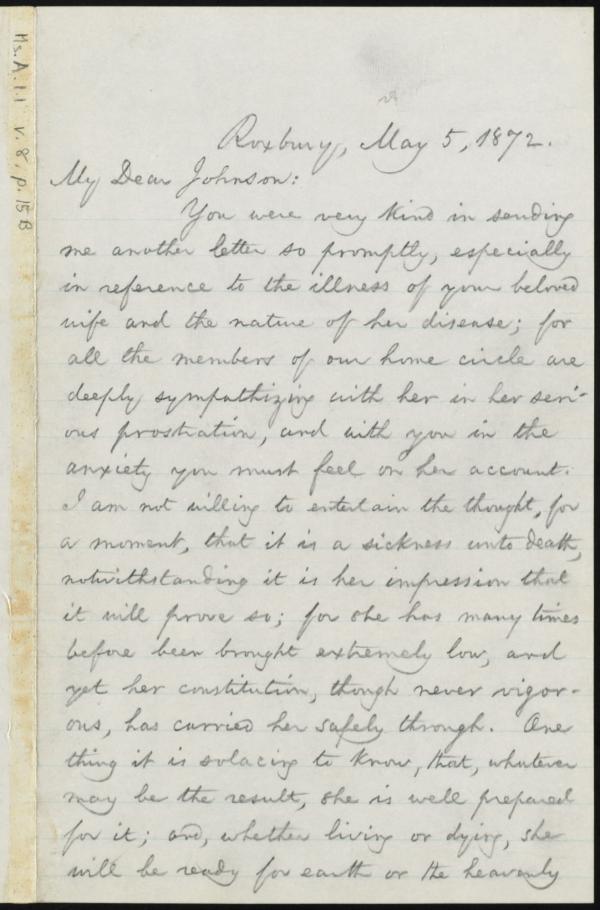 Ms. A. 1.1 v. 8, p. 15B
Roxbury, May 5, 1872.
My Dear Johnson:
You were very kind in sending
me another letter so promptly, especially
in reference to the illness of your beloved
wife and the nature of her disease; for
all the members of our home circle are
deeply sympathizing with her in her seri-
ous prostration, and with you in the
anxiety you must feel on her account.
I am not willing to entertain the thought, for
a moment, that it is a sickness unto death,
notwithstanding it is her impression that
it will prove so; for she has many times
before been brought extremely low, and
yet her constitution, though never vigor-
ous, has carried her safely through. One
thing it is solacing to know, that, whatever
may be the result, she is well prepared
for it; and, whether living or dying, she
will be ready for earth or the heavenly